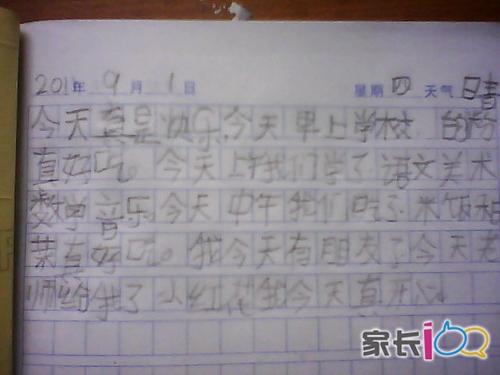 201 年 9 月 1 日 星期 四 天气 晴
今天真是快乐,今天早上学校 的
真好吃。今天上午我们学了语文美术
数学音乐今天中午我们吃了米饭
菜真好吃。我今天有朋友了今天老
师给我了小红花我今天真开心
家长100